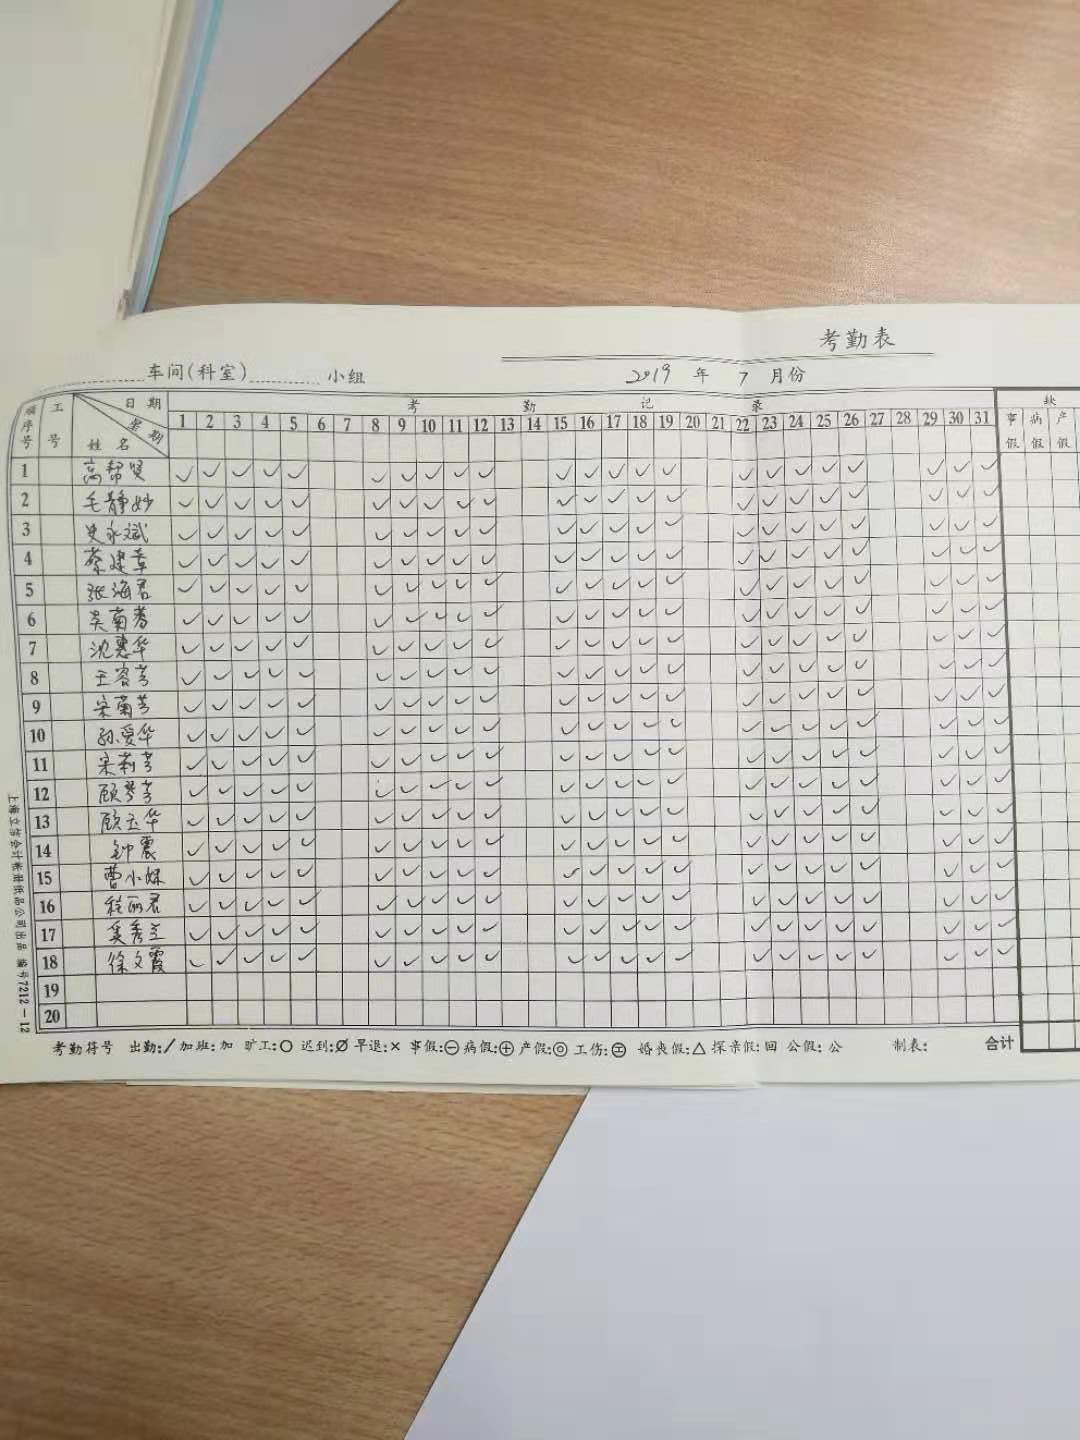 考勤表
车间(科室) 小组 2019 年 7 月份
顺序号 工号 日期 星期 姓名 考勤记录 缺
1 2 3 4 5 6 7 8 9 10 11 12 13 14 15 16 17 18 19 20 21 22 23 24 25 26 27 28 29 30 31 事假 病假 产假
1 高帮贤 ✓ ✓ ✓ ✓ ✓ ✓ ✓ ✓ ✓ ✓ ✓ ✓ ✓ ✓ ✓ ✓ ✓ ✓ ✓ ✓ ✓ ✓ ✓
2 毛静妙 ✓ ✓ ✓ ✓ ✓ ✓ ✓ ✓ ✓ ✓ ✓ ✓ ✓ ✓ ✓ ✓ ✓ ✓ ✓ ✓ ✓ ✓ ✓
3 史永斌 ✓ ✓ ✓ ✓ ✓ ✓ ✓ ✓ ✓ ✓ ✓ ✓ ✓ ✓ ✓ ✓ ✓ ✓ ✓ ✓ ✓ ✓ ✓
4 蔡建章 ✓ ✓ ✓ ✓ ✓ ✓ ✓ ✓ ✓ ✓ ✓ ✓ ✓ ✓ ✓ ✓ ✓ ✓ ✓ ✓ ✓ ✓ ✓
5 张海君 ✓ ✓ ✓ ✓ ✓ ✓ ✓ ✓ ✓ ✓ ✓ ✓ ✓ ✓ ✓ ✓ ✓ ✓ ✓ ✓ ✓ ✓ ✓
6 ✓ ✓ ✓ ✓ ✓ ✓ ✓ ✓ ✓ ✓ ✓ ✓ ✓ ✓ ✓ ✓ ✓ ✓ ✓ ✓ ✓ ✓ ✓
7 沈惠华 ✓ ✓ ✓ ✓ ✓ ✓ ✓ ✓ ✓ ✓ ✓ ✓ ✓ ✓ ✓ ✓ ✓ ✓ ✓ ✓ ✓ ✓ ✓
8 ✓ ✓ ✓ ✓ ✓ ✓ ✓ ✓ ✓ ✓ ✓ ✓ ✓ ✓ ✓ ✓ ✓ ✓ ✓ ✓ ✓ ✓ ✓
9 宋菊芳 ✓ ✓ ✓ ✓ ✓ ✓ ✓ ✓ ✓ ✓ ✓ ✓ ✓ ✓ ✓ ✓ ✓ ✓ ✓ ✓ ✓ ✓ ✓
10 孙爱华 ✓ ✓ ✓ ✓ ✓ ✓ ✓ ✓ ✓ ✓ ✓ ✓ ✓ ✓ ✓ ✓ ✓ ✓ ✓ ✓ ✓ ✓ ✓
11 宋莉芳 ✓ ✓ ✓ ✓ ✓ ✓ ✓ ✓ ✓ ✓ ✓ ✓ ✓ ✓ ✓ ✓ ✓ ✓ ✓ ✓ ✓ ✓ ✓
12 顾琴芳 ✓ ✓ ✓ ✓ ✓ ✓ ✓ ✓ ✓ ✓ ✓ ✓ ✓ ✓ ✓ ✓ ✓ ✓ ✓ ✓ ✓ ✓ ✓
13 顾玉华 ✓ ✓ ✓ ✓ ✓ ✓ ✓ ✓ ✓ ✓ ✓ ✓ ✓ ✓ ✓ ✓ ✓ ✓ ✓ ✓ ✓ ✓ ✓
14 钟震 ✓ ✓ ✓ ✓ ✓ ✓ ✓ ✓ ✓ ✓ ✓ ✓ ✓ ✓ ✓ ✓ ✓ ✓ ✓ ✓ ✓ ✓ ✓
15 曹小妹 ✓ ✓ ✓ ✓ ✓ ✓ ✓ ✓ ✓ ✓ ✓ ✓ ✓ ✓ ✓ ✓ ✓ ✓ ✓ ✓ ✓ ✓ ✓
16 程丽君 ✓ ✓ ✓ ✓ ✓ ✓ ✓ ✓ ✓ ✓ ✓ ✓ ✓ ✓ ✓ ✓ ✓ ✓ ✓ ✓ ✓ ✓ ✓
17 吴秀兰 ✓ ✓ ✓ ✓ ✓ ✓ ✓ ✓ ✓ ✓ ✓ ✓ ✓ ✓ ✓ ✓ ✓ ✓ ✓ ✓ ✓ ✓ ✓
18 徐文霞 ✓ ✓ ✓ ✓ ✓ ✓ ✓ ✓ ✓ ✓ ✓ ✓ ✓ ✓ ✓ ✓ ✓ ✓ ✓ ✓ ✓ ✓ ✓
19
20
考勤符号 出勤:/ 加班:加 旷工:○ 迟到:Ø 早退:× 事假:⊖ 病假:⊕ 产假:◎ 工伤:㊣ 婚丧假:△ 探亲假:回 公假:公 制表: 合计
上海立信会计帐册纸品公司出品 编号7212-12